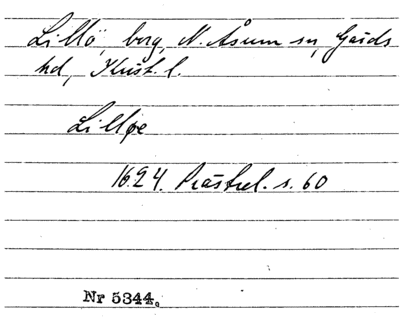 Lillö, borg, N. Åsum sn, Gärds
hd, Krist. l.
Lilløe
1624. Prästrel. s. 60
Nr 5344.